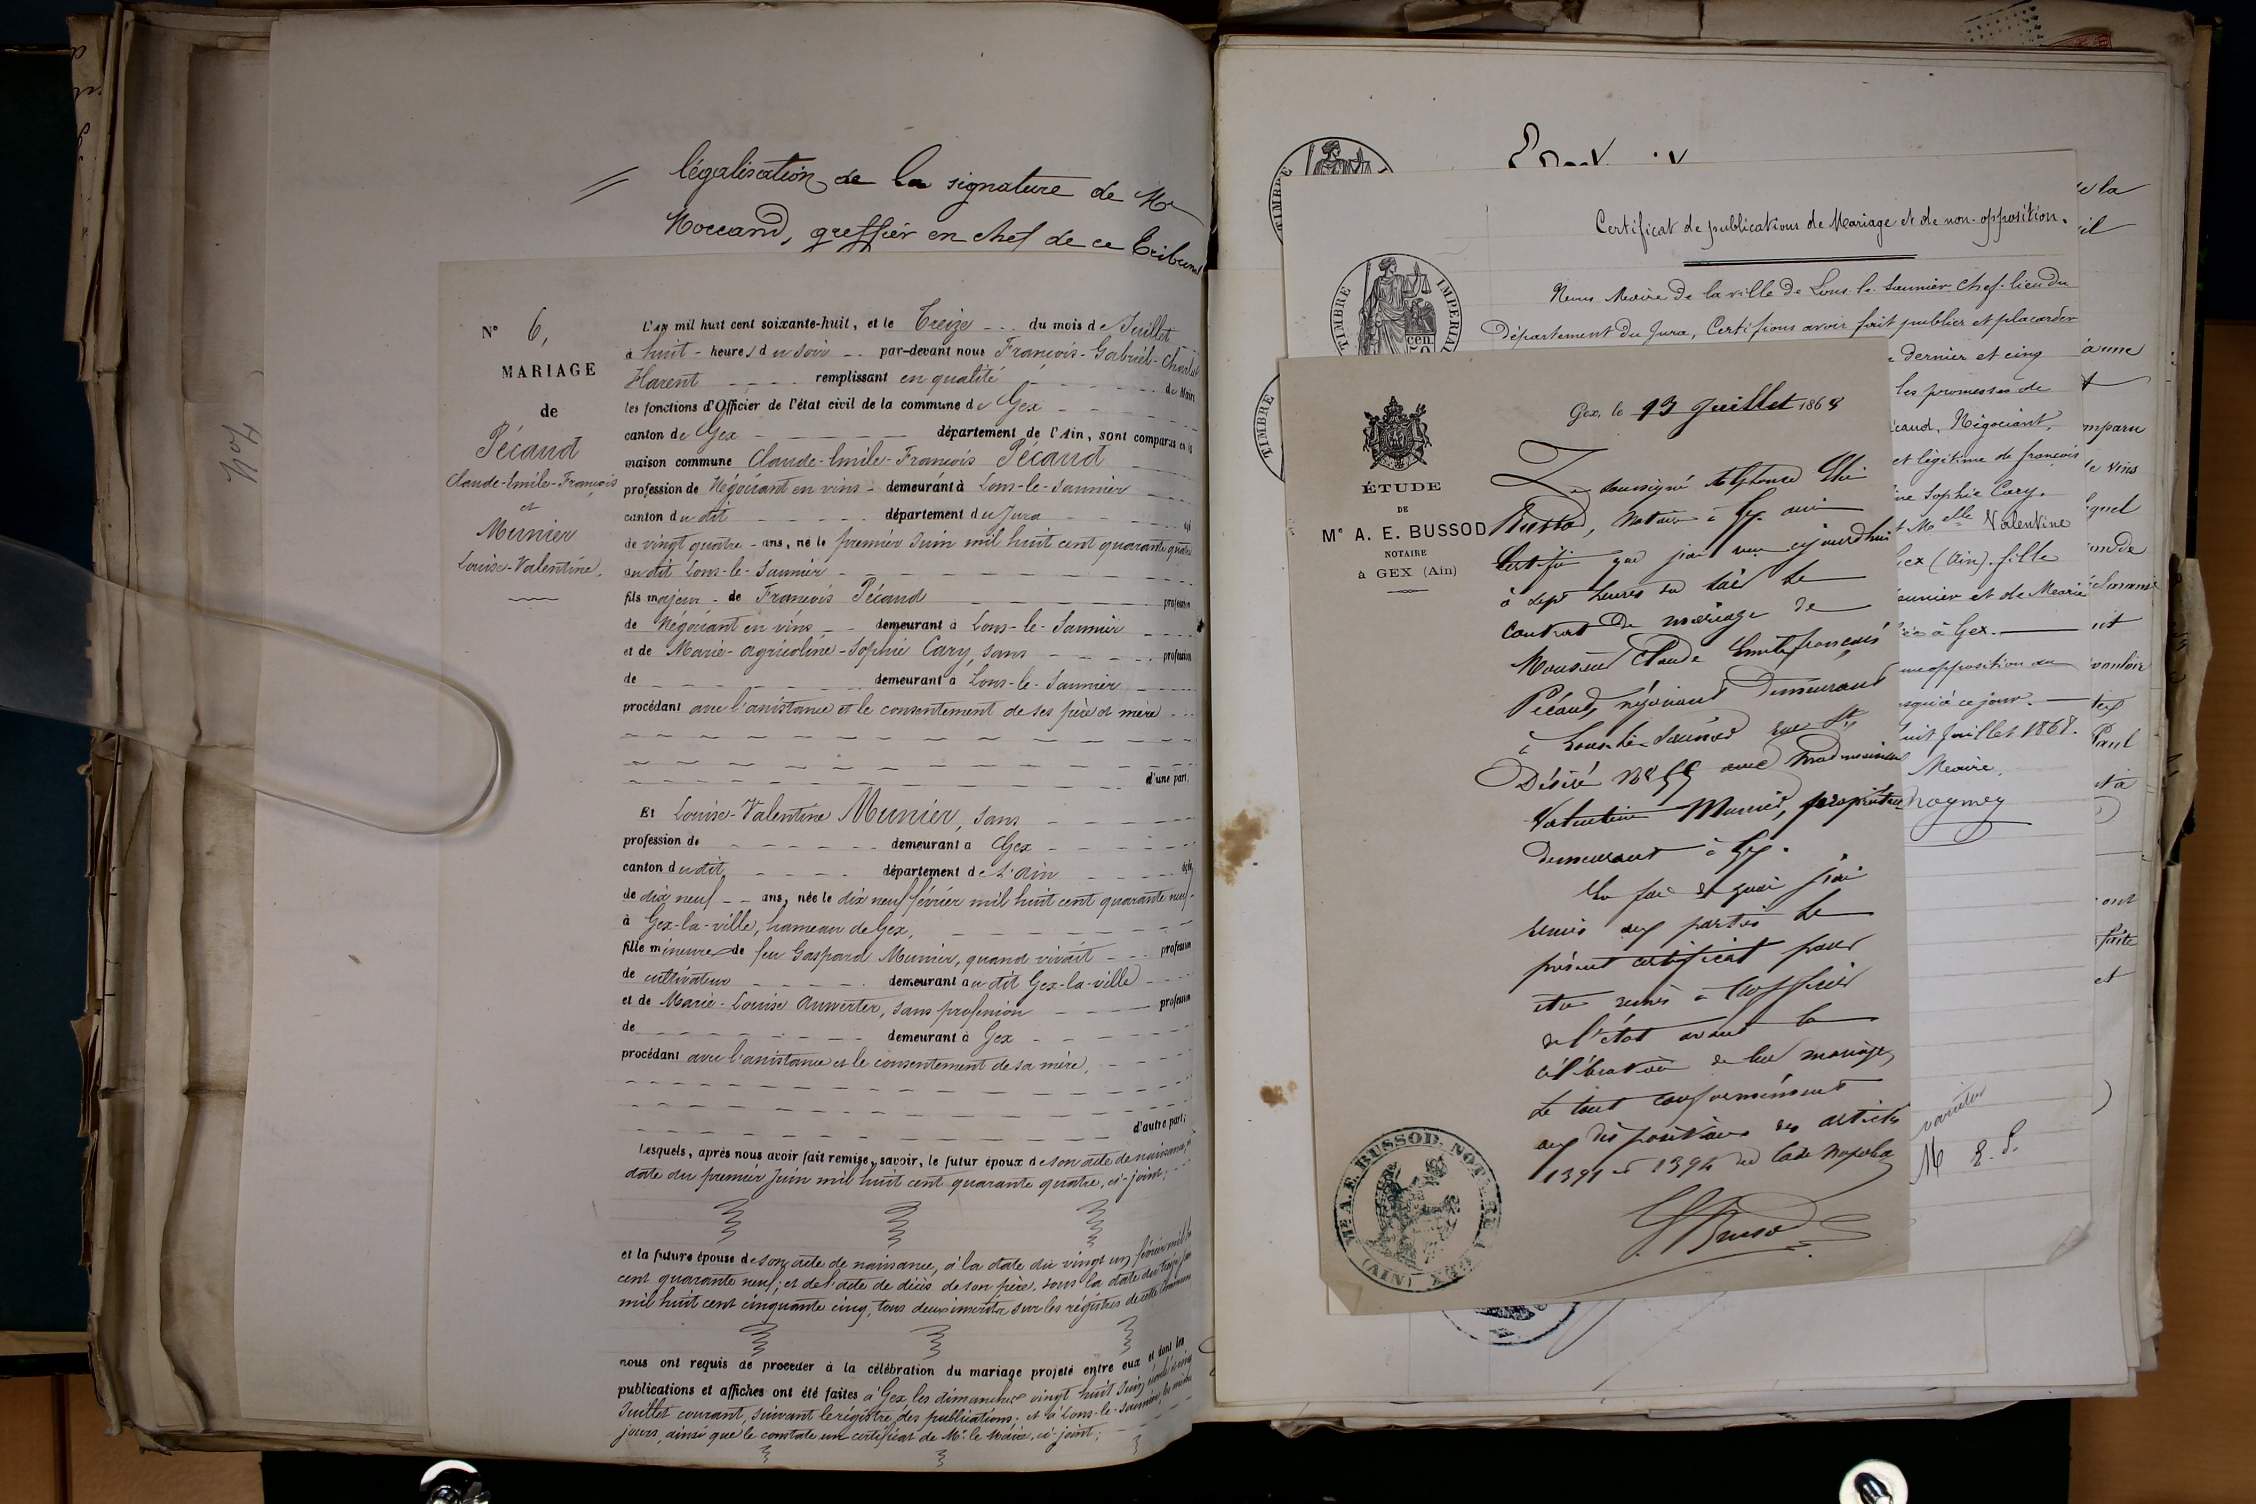 légalisation de la signature de Mr
Moccand, greffier en chef de ce Tribunal
N° 6,
MARIAGE
de
Pécaud
Claude-Emile-François
et
Munier
Louise-Valentine.
L'an mil huit cent soixante-huit, et le Treize du mois de Juillet
à huit heures du soir par-devant nous François-Gabriel-Charles
Harent remplissant en qualité de Maire
les fonctions d'Officier de l'état civil de la commune de Gex
canton de Gex département de l'Ain, sont comparus en la
maison commune Claude-Emile-François Pécaud
profession de Négociant en vins demeurant à Lons-le-Saunier
canton du dit département du Jura
de vingt quatre ans, né le premier Juin mil huit cent quarante quatre
au dit Lons-le-Saunier
fils majeur de François Pécaud profession
de Négociant en vins demeurant à Lons-le-Saunier
et de Marie-Agricoline-Sophie Cary, sans profession
de demeurant à Lons-le-Saunier
procédant avec l'assistance et le consentement de ses père et mère
d'une part;
Et Louise-Valentine Munier, sans
profession de demeurant à Gex
canton du dit département de l'Ain âgée
de dix neuf ans, née le dix neuf février mil huit cent quarante neuf
à Gex-la-ville, hameau de Gex,
fille mineure de feu Gaspard Munier, quand vivait profession
de cultivateur demeurant au dit Gex-la-ville
et de Marie-Louise Anwerter, sans profession profession
de demeurant à Gex
procédant avec l'assistance et le consentement de sa mère,
d'autre part;
Lesquels, après nous avoir fait remise, savoir, le futur époux de son acte de naissance,
date du premier Juin mil huit cent quarante quatre, ci-joint;
et la future épouse de son acte de naissance, à la date du vingt un février mil huit
cent quarante neuf; et de l'acte de décès de son père, sous la date du
mil huit cent cinquante cinq, tous deux inscrits sur les régistres de cette Commune
nous ont requis de procéder à la célébration du mariage projeté entre eux et dont les
publications et affiches ont été faites à Gex, les dimanches vingt huit Juin
Juillet courant, suivant le régistre des publications; et à Lons-le-Saunier, les mêmes
jours, ainsi que le constate un certificat de Mr le Maire, ci-joint;
Certificat de publications de Mariage et de non-opposition.
TIMBRE IMPERIAL
Nous Maire de la ville de Lons-le-Saunier Chef-lieu du
Département du Jura, Certifions avoir fait publier et placarder
dernier et cinq
les promesses de
Négociant,
et légitime de françois
Sophie Cary.
Melle Valentine
(Ain). fille
et de Marie
à Gex.
opposition au
à ce jour.
Juillet 1868.
Maire,
ÉTUDE
DE
Me A. E. BUSSOD
NOTAIRE
à GEX (Ain)
Gex, le 13 Juillet 1868
Je soussigné Alphonse Elie
Bussod, Notaire à Gex Ain
Certifie que j'ai reçu aujourd'hui
à sept heures du soir le
contrat de mariage de
Monsieur Claude Emile françois
Pécaud, négociant demeurant
à Lons-le-Saunier rue St
Désiré avec Mademoiselle
Valentine Munier, propriétaire
demeurant à Gex.
En foi de quoi j'ai
remis aux parties le
présent certificat pour
être remis à l'officier
de l'état avant la
célébration de leur mariage,
le tout conformément
aux dispositions des articles
1391 et 1394 du Code Napoléon
Bussod
Me A. E. BUSSOD NOTAIRE A GEX (AIN)